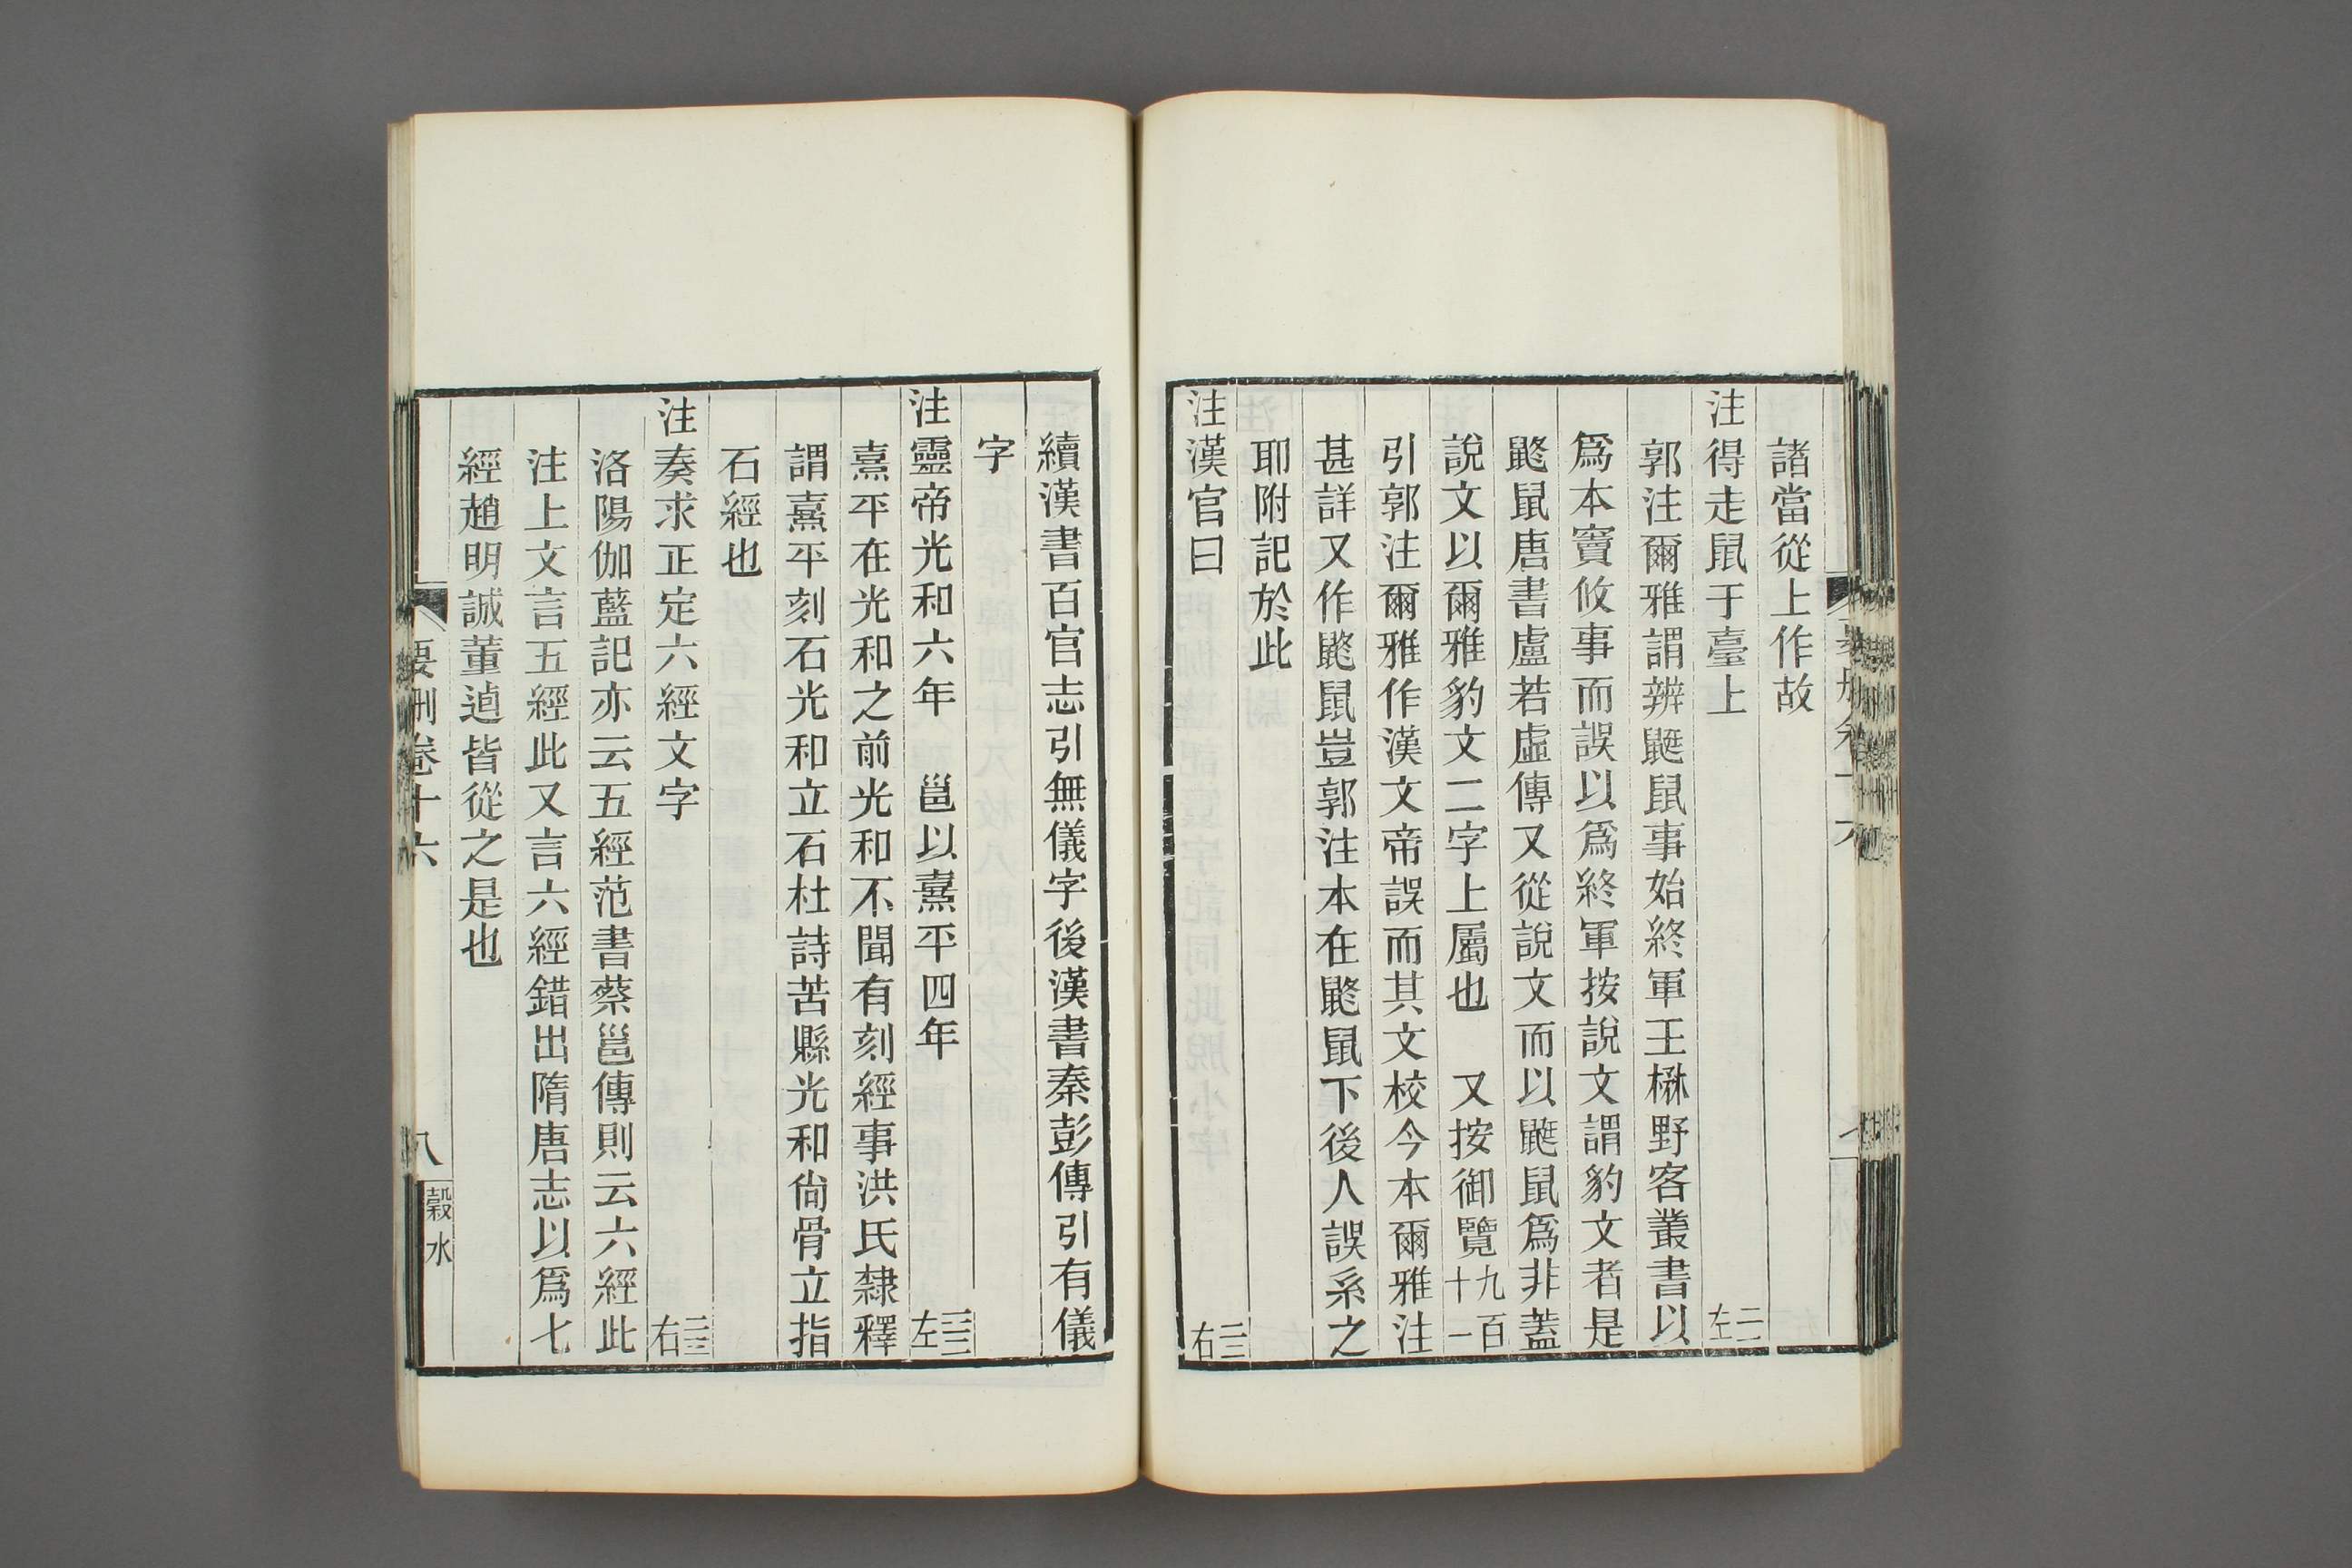 諸當從上作故
注得走鼠于臺上 左
郭注爾雅謂辨鼮鼠事始終軍王楙野客叢書以
爲本竇攸事而誤以爲終軍按說文謂豹文者是
鼨鼠唐書盧若虛傳又從說文而以鼮鼠爲非蓋
說文以爾雅豹文二字上屬也 又按御覽九百十一
引郭注爾雅作漢文帝誤而其文校今本爾雅注
甚詳又作鼨鼠豈郭注本在鼨鼠下後人誤系之
耶附記於此
注漢官曰 右
續漢書百官志引無儀字後漢書秦彭傳引有儀
字
注靈帝光和六年 邕以熹平四年 左
熹平在光和之前光和不聞有刻經事洪氏隸釋
謂熹平刻石光和立石杜詩苦縣光和尙骨立指
石經也
注奏求正定六經文字 右
洛陽伽藍記亦云五經范書蔡邕傳則云六經此
注上文言五經此又言六經錯出隋唐志以爲七
經趙明誠董逌皆從之是也
要刪卷十六 八 穀水